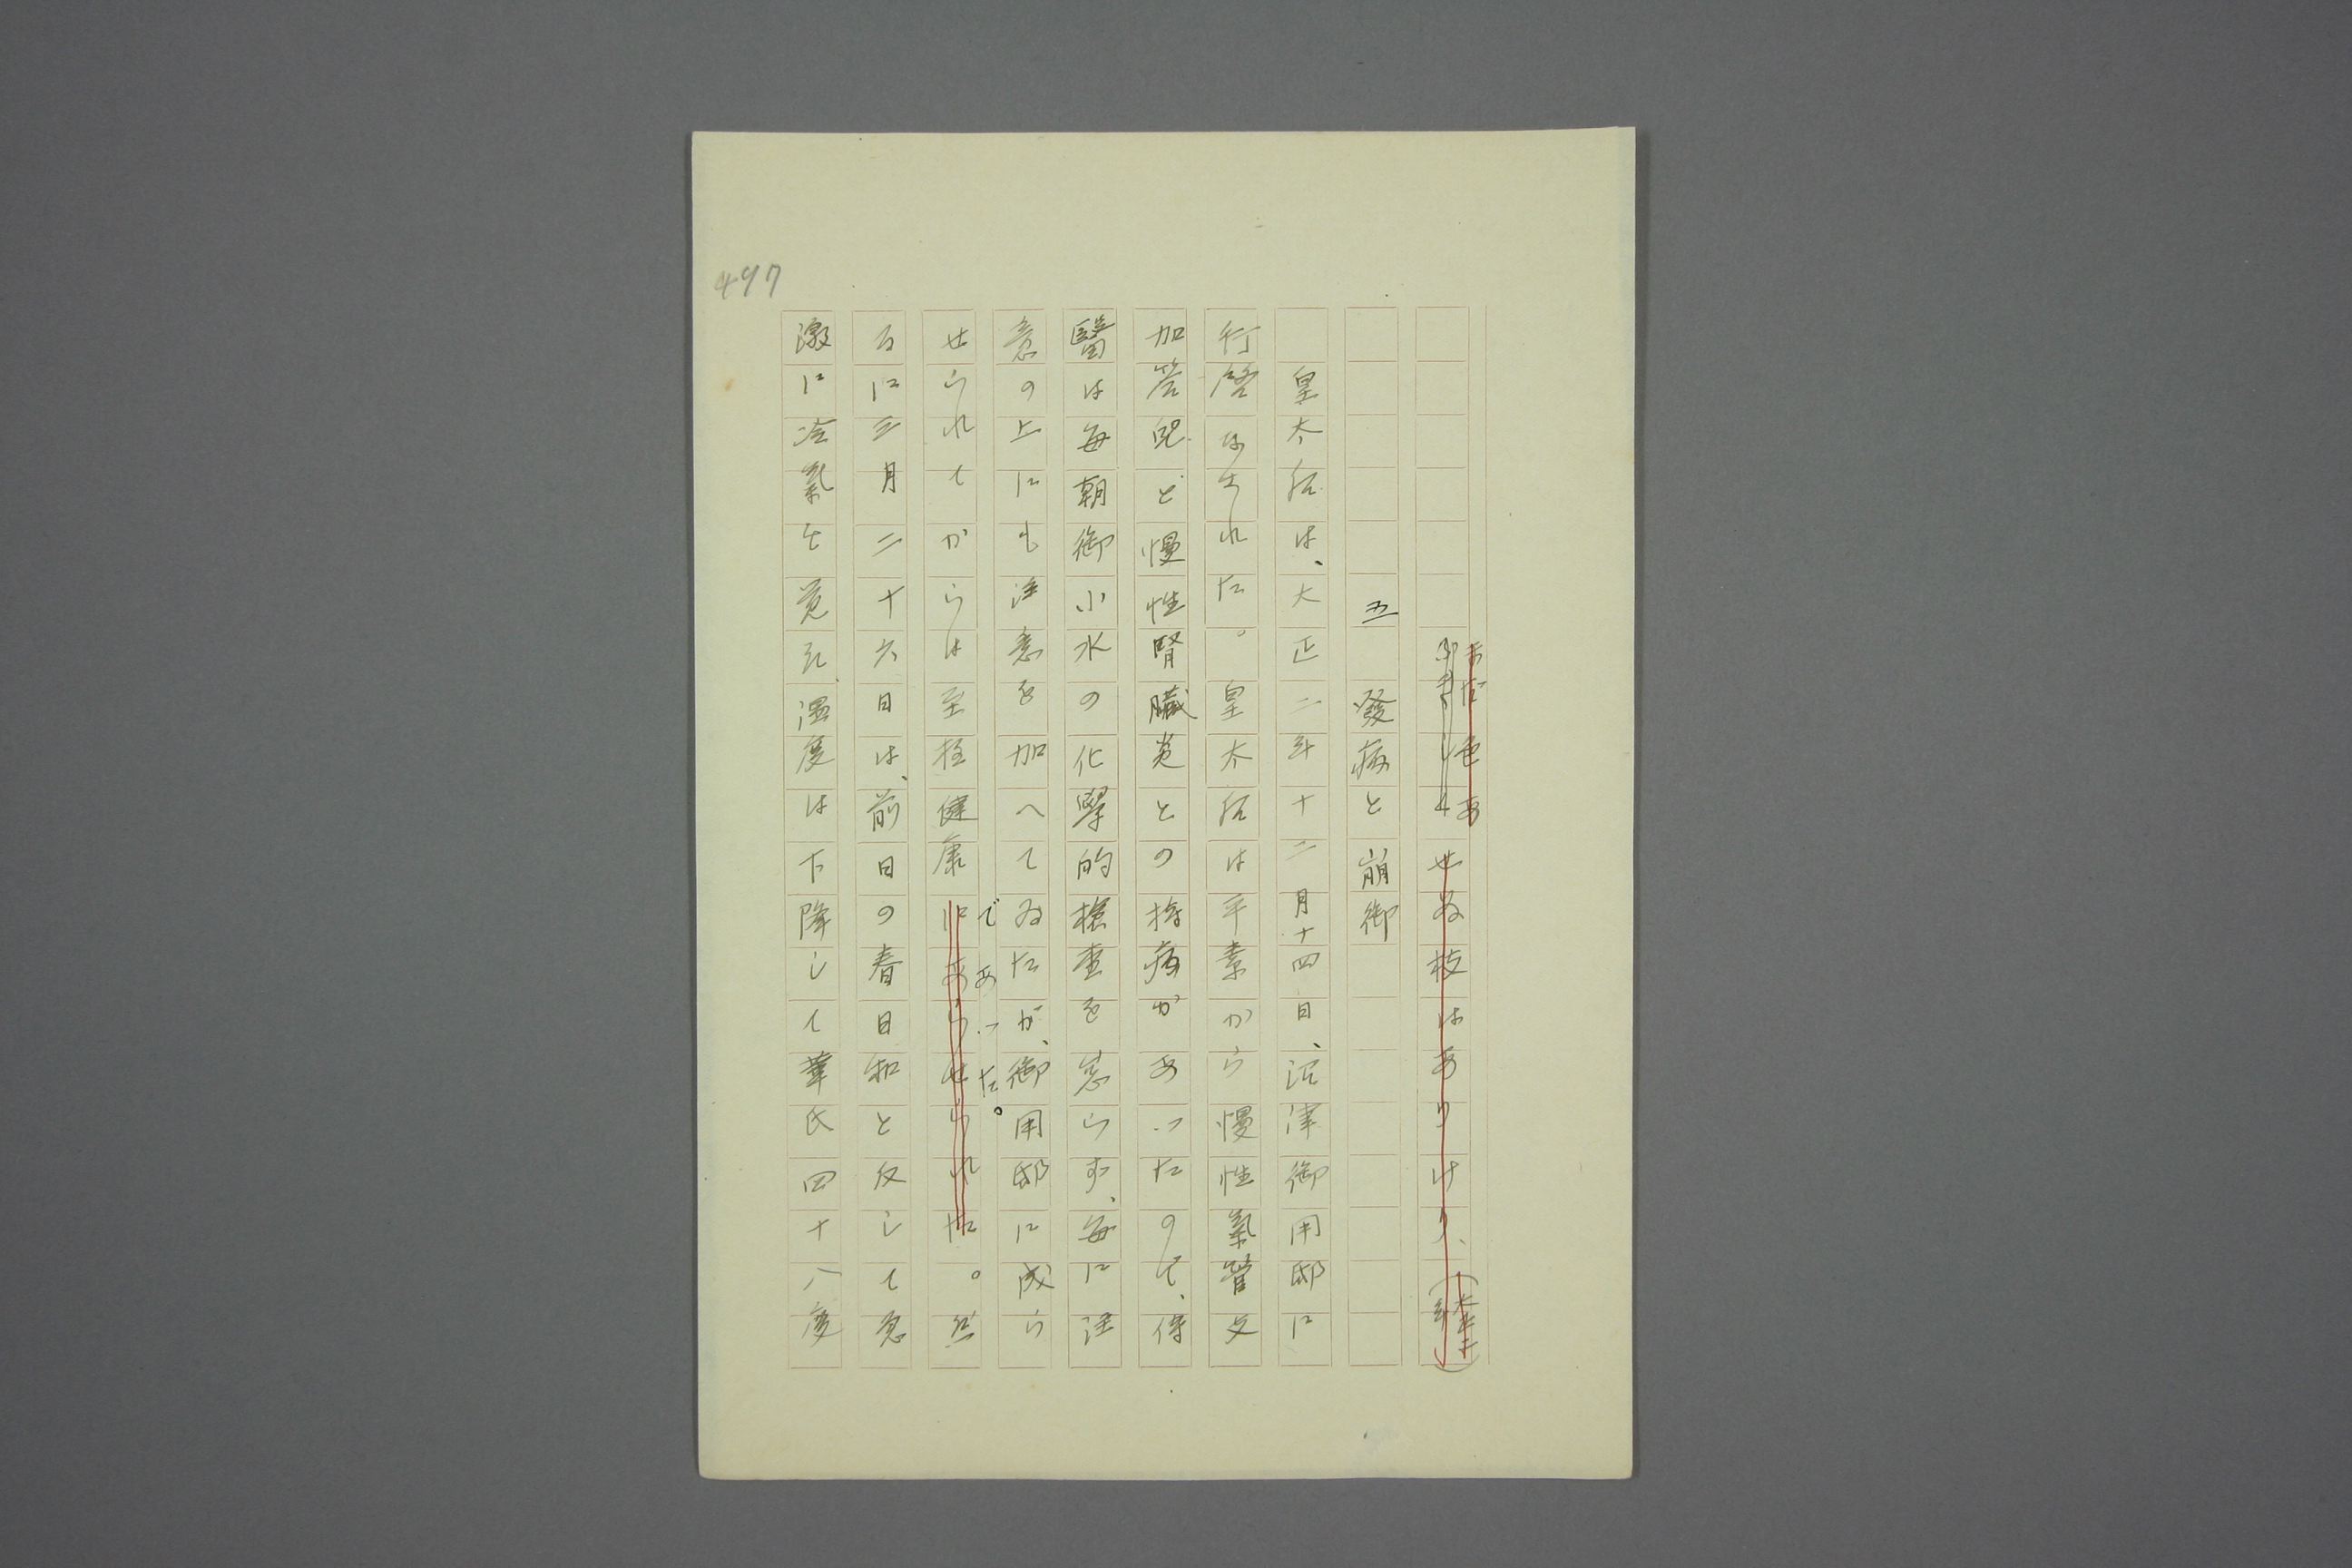 497
まだ色あせぬ枝はありけり、(大正二年)
五 發病と崩御
皇太后は、大正二年十二月十四日、沼津御用邸に
行啓なされた。皇太后は平素から慢性氣管支
加答兒と慢性腎臓炎との持病があつたので、侍
醫は毎朝御小水の化學的檢査を怠らず、毎に注
意の上にも注意を加へてゐたが、御用邸に成ら
せられてからは至極健康であつた。然
るに三月二十六日は、前日の春日和と反して急
激に冷氣を覚え、温度は下降して華氏四十八度